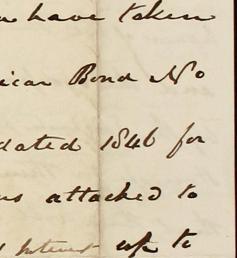 have taken
ican Bond No
dated 1846 for
attached to
Interest up to